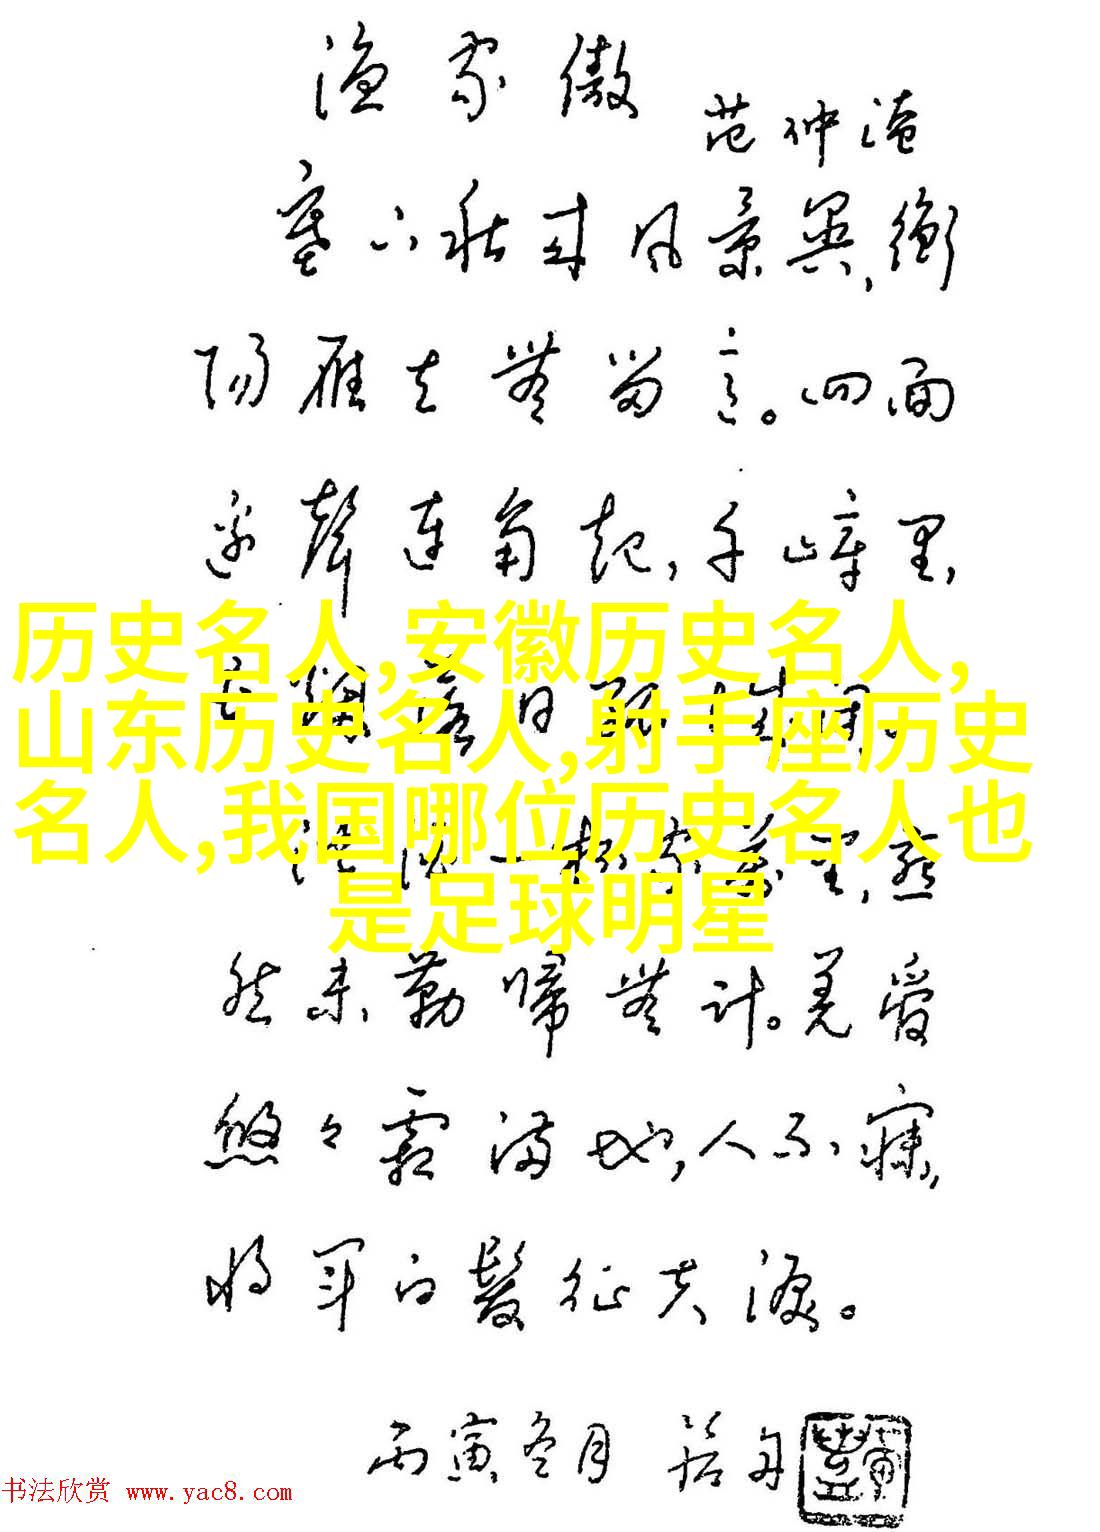 渔家傲
范仲淹
塞下秋来风景異,衡
阳雁去無留意。四面
边聲连角起,千嶂里,
历史名人,安徽历史名人,
长烟落日孤城闭。
山东历史名人,射手座历史
名人,我国哪位历史名人也
浊酒一杯家萬里,燕
是足球明星
然未勒归無计。羌管
悠々霜满地,人不寐,
将军白髮征夫淚。
丙寅冬月
书法欣赏 www.yac8.com